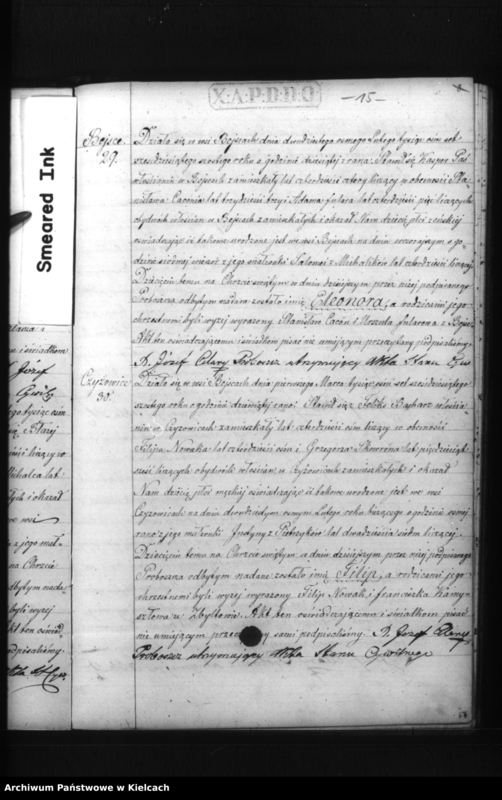 X.A.P.D.D.O
—15—
Smeared Ink
Bejsce
29.
Działo się w wsi Bejscach dnia dwudziestego ósmego Lutego tysiąc ośm set
sześdziesiątego szóstego roku o godzinie dziesiątej z rana. Stawił się Kacper
włościanin w Bejscach zamieszkały lat czterdzieści cztery liczący w obecności Sta-
nisława Caconia lat trzydzieści trzy i Adama Fulara lat czterdzieści pięć liczących
obydwóch włościan w Bejscach zamieszkałych i okazał Nam dziecię płci żeńskiej
oświadczając iż takowe urodzone jest we wsi Bejscach na dniu wczorajszym o go-
dzinie siódmej wieczór z jego małżonki Salomei z Michalików lat czterdzieści liczącej
Dziecięciu temu na Chrzcie świętym w dniu dzisiejszym przez niżej podpisanego
Proboszcza odbytym nadane zostało imię Eleonora, a rodzicami jego
chrzestnemi byli wyżej wyrażony Stanisław Cacoń i Urszula Fularowa z Bejsc
Akt ten oświadczającemu i świadkom pisać nie umiejącym przeczytany podpisaliśmy.
X. Józef Proboszcz utrzymujący Akta Stanu Cyw
Czyżowice
30.
Działo się w wsi Bejscach dnia pierwszego Marca tysiąc ośm set sześdziesiątego
szóstego roku o godzinie dziewiątej rano. Stawił się Feliks włościa-
nin w Czyżowicach zamieszkały lat czterdzieści ośm liczący w obecności
Filipa Nowaka lat czterdzieści ośm i Grzegorza Skowrona lat pięćdziesiąt
sześć liczących obydwóch włościan w Czyżowicach zamieszkałych i okazał
Nam dziecię płci męzkiej oświadczając iż takowe urodzone jest we wsi
Czyżowicach na dniu dwudziestym ósmym Lutego roku bieżącego o godzinie ósmej
rano z jego małżonki Justyny z Pietrzyków lat dwadzieścia siedm liczącej.
Dziecięciu temu na Chrzcie świętym w dniu dzisiejszym przez niżej podpisanego
Proboszcza odbytym nadane zostało imię Filip, a rodzicami jego
chrzestnemi byli wyżej wyrażony Filip Nowak i Franciszka
z Zbeltowic. Akt ten oświadczającemu i świadkom pisać
nie umiejącym sami podpisaliśmy. X. Józef
Proboszcz utrzymujący Akta Stanu Cywilnego
Archiwum Państwowe w Kielcach